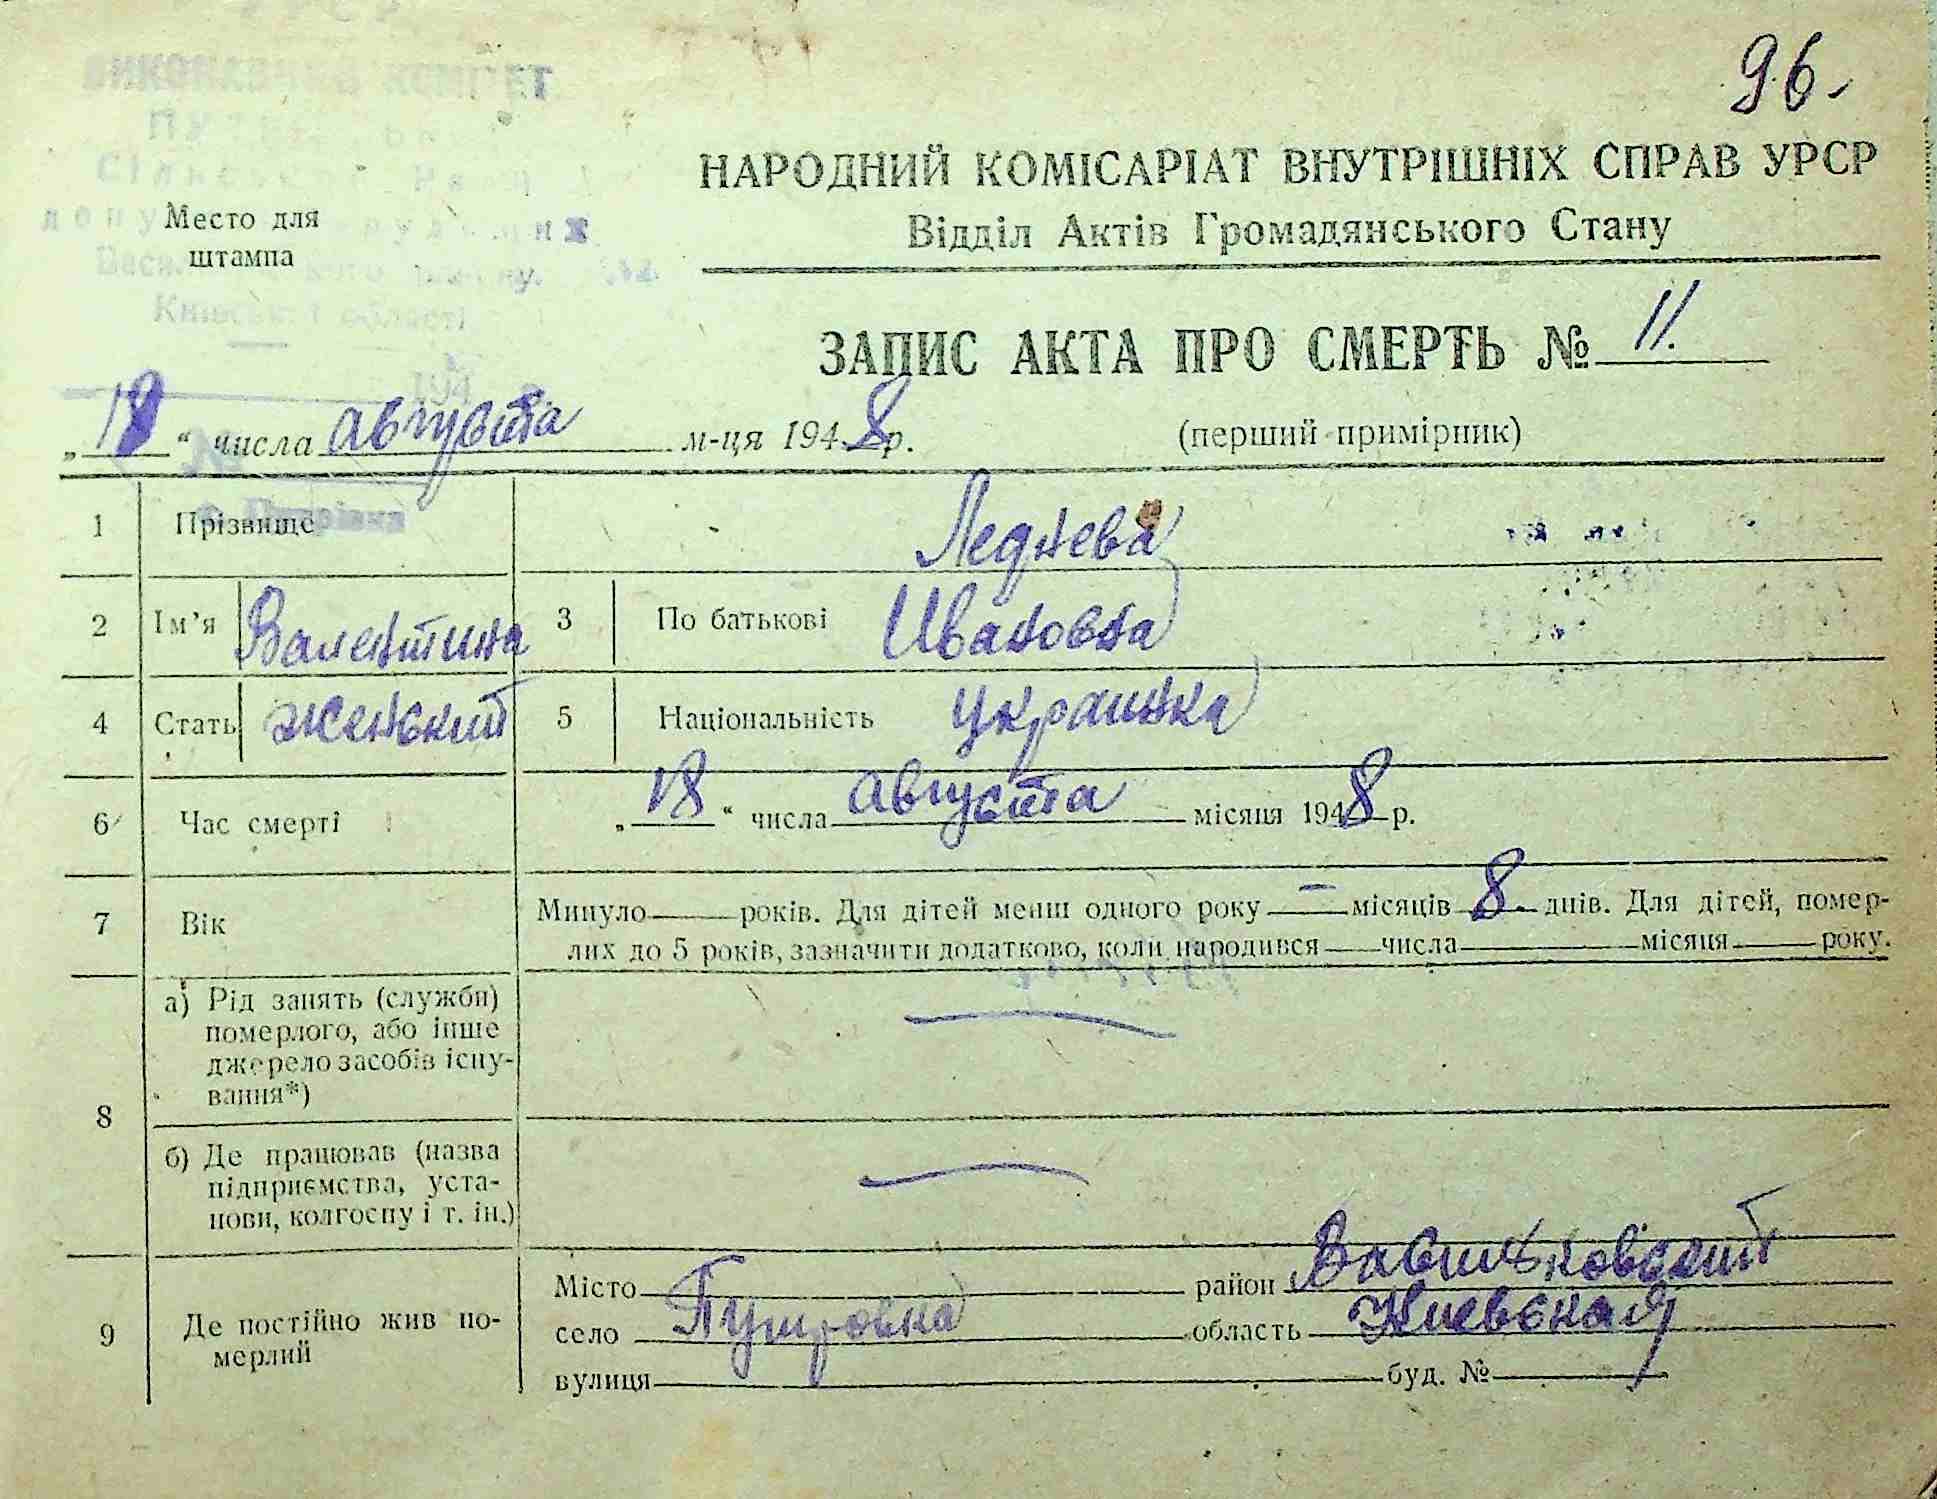 96.
ВИКОНАВЧИЙ КОМІТЕТ
Место для
штампа
Київської області
НАРОДНИЙ КОМІСАРІАТ ВНУТРІШНІХ СПРАВ УРСР
Відділ Актів Громадянського Стану
ЗАПИС АКТА ПРО СМЕРТЬ № 11.
„18“ числа августа м-ця 1948 р. (перший примірник)
1 Прізвище Леднева
2 Ім'я Валентина 3 По батькові Ивановна
4 Стать женский 5 Національність украинка
6 Час смерті „18“ числа августа місяця 1948 р.
7 Вік Минуло — років. Для дітей менш одного року — місяців 8 днів. Для дітей, помер-
лих до 5 років, зазначити додатково, коли народився — числа — місяця — року.
8 а) Рід занять (служби)
померлого, або інше
джерело засобів існу-
вання*) —
б) Де працював (назва
підприємства, уста-
нови, колгоспу і т. ін.) —
9 Де постійно жив по-
мерлий
Місто район Васильковский
село Путровка область Киевская
вулиця буд. №